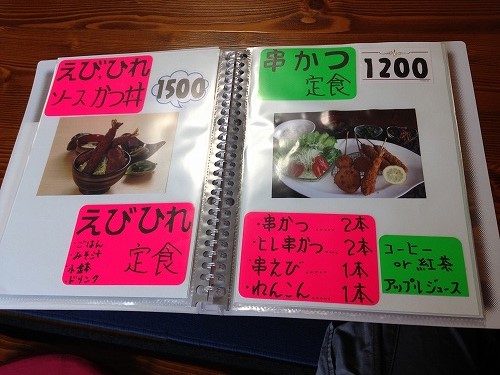 えび、ひれ
ソースかつ丼
1500
えびひれ
定食
・ごはん
みそ汁
小鉢
ドリンク
串かつ
定食
1200
・串かつ ..... 2本
・ヒレ串かつ .... 2本
・串えび ...... 1本
・れんこん ...... 1本
コーヒー
or 紅茶
アップルジュース